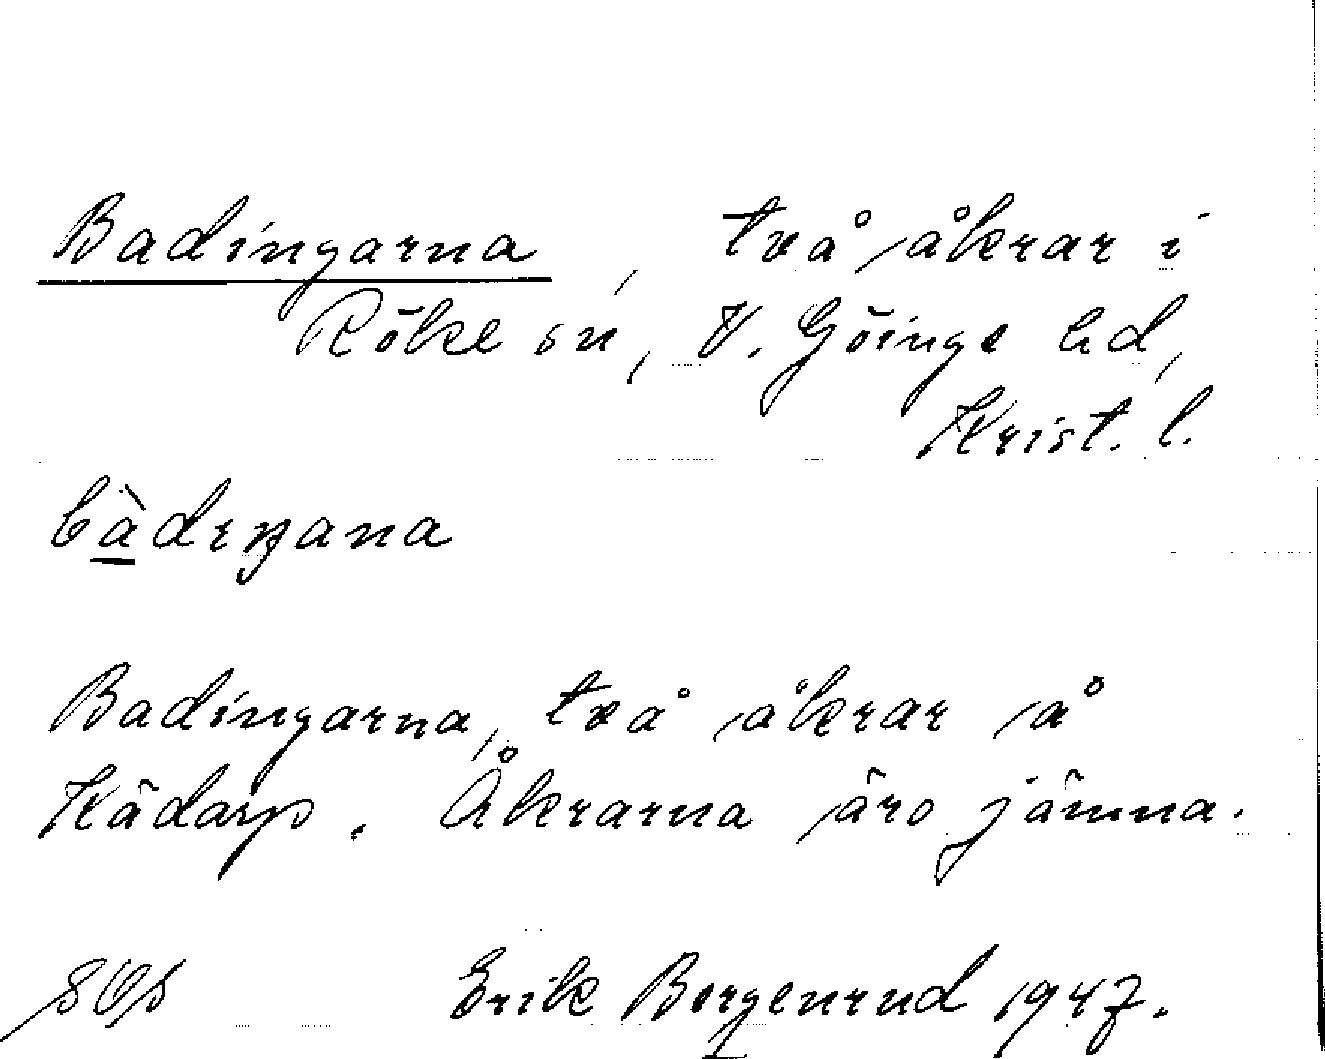 Badingarna, två åkrar i
Röke sn, V. Göinge hd,
Krist. l.
bàdıŋana
Badingarna, två åkrar å
Kädarp. Åkrarna äro jämna.
Erik Borgenrud 1947.